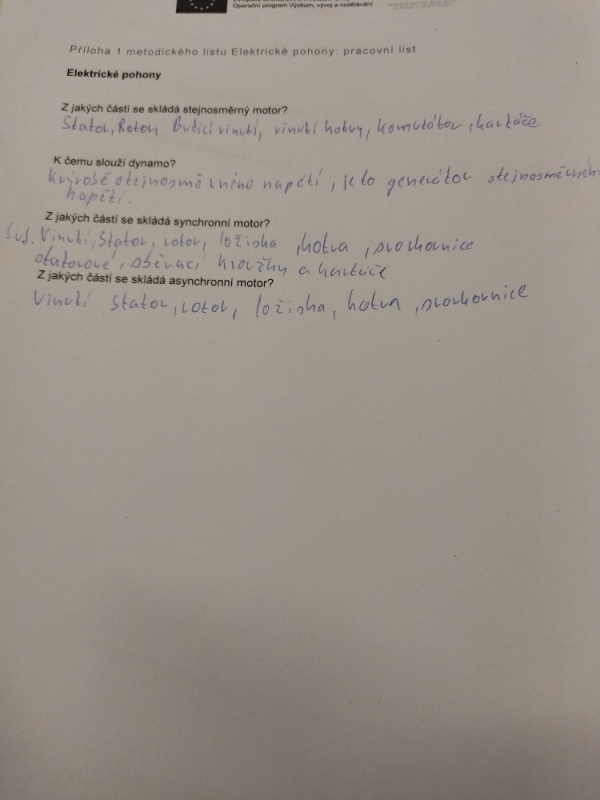 Operační program Výzkum, vývoj a vzdělávání
Příloha 1 metodického listu Elektrické pohony: pracovní list
Elektrické pohony
Z jakých částí se skládá stejnosměrný motor?
Stator, Rotor, Budící vinutí, vinutí kotvy, komutátor, kartáče
K čemu slouží dynamo?
K výrobě stejnosměrného napětí, je to generátor stejnosměrného
napětí.
Z jakých částí se skládá synchronní motor?
Vinutí, Stator, rotor, ložiska, kotva, svorkovnice
statorové, sběrací kroužky a kartáče
Z jakých částí se skládá asynchronní motor?
Vinutí Stator, rotor, ložiska, kotva, svorkovnice